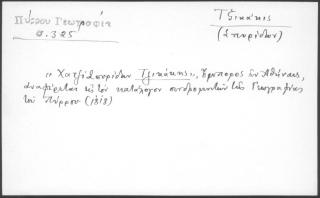 Πύρρου Γεωγραφία
σ. 325
Τζικάκις
(Σπυρίδων)
"Χατζῆ Σπυρίδων Τζικάκης", ἔμπορος ἐν Ἀθήναις,
ἀναφέρεται εἰς τὸν κατάλογον συνδρομητῶν τῆς Γεωγραφίας
τοῦ Πύρρου (1818)